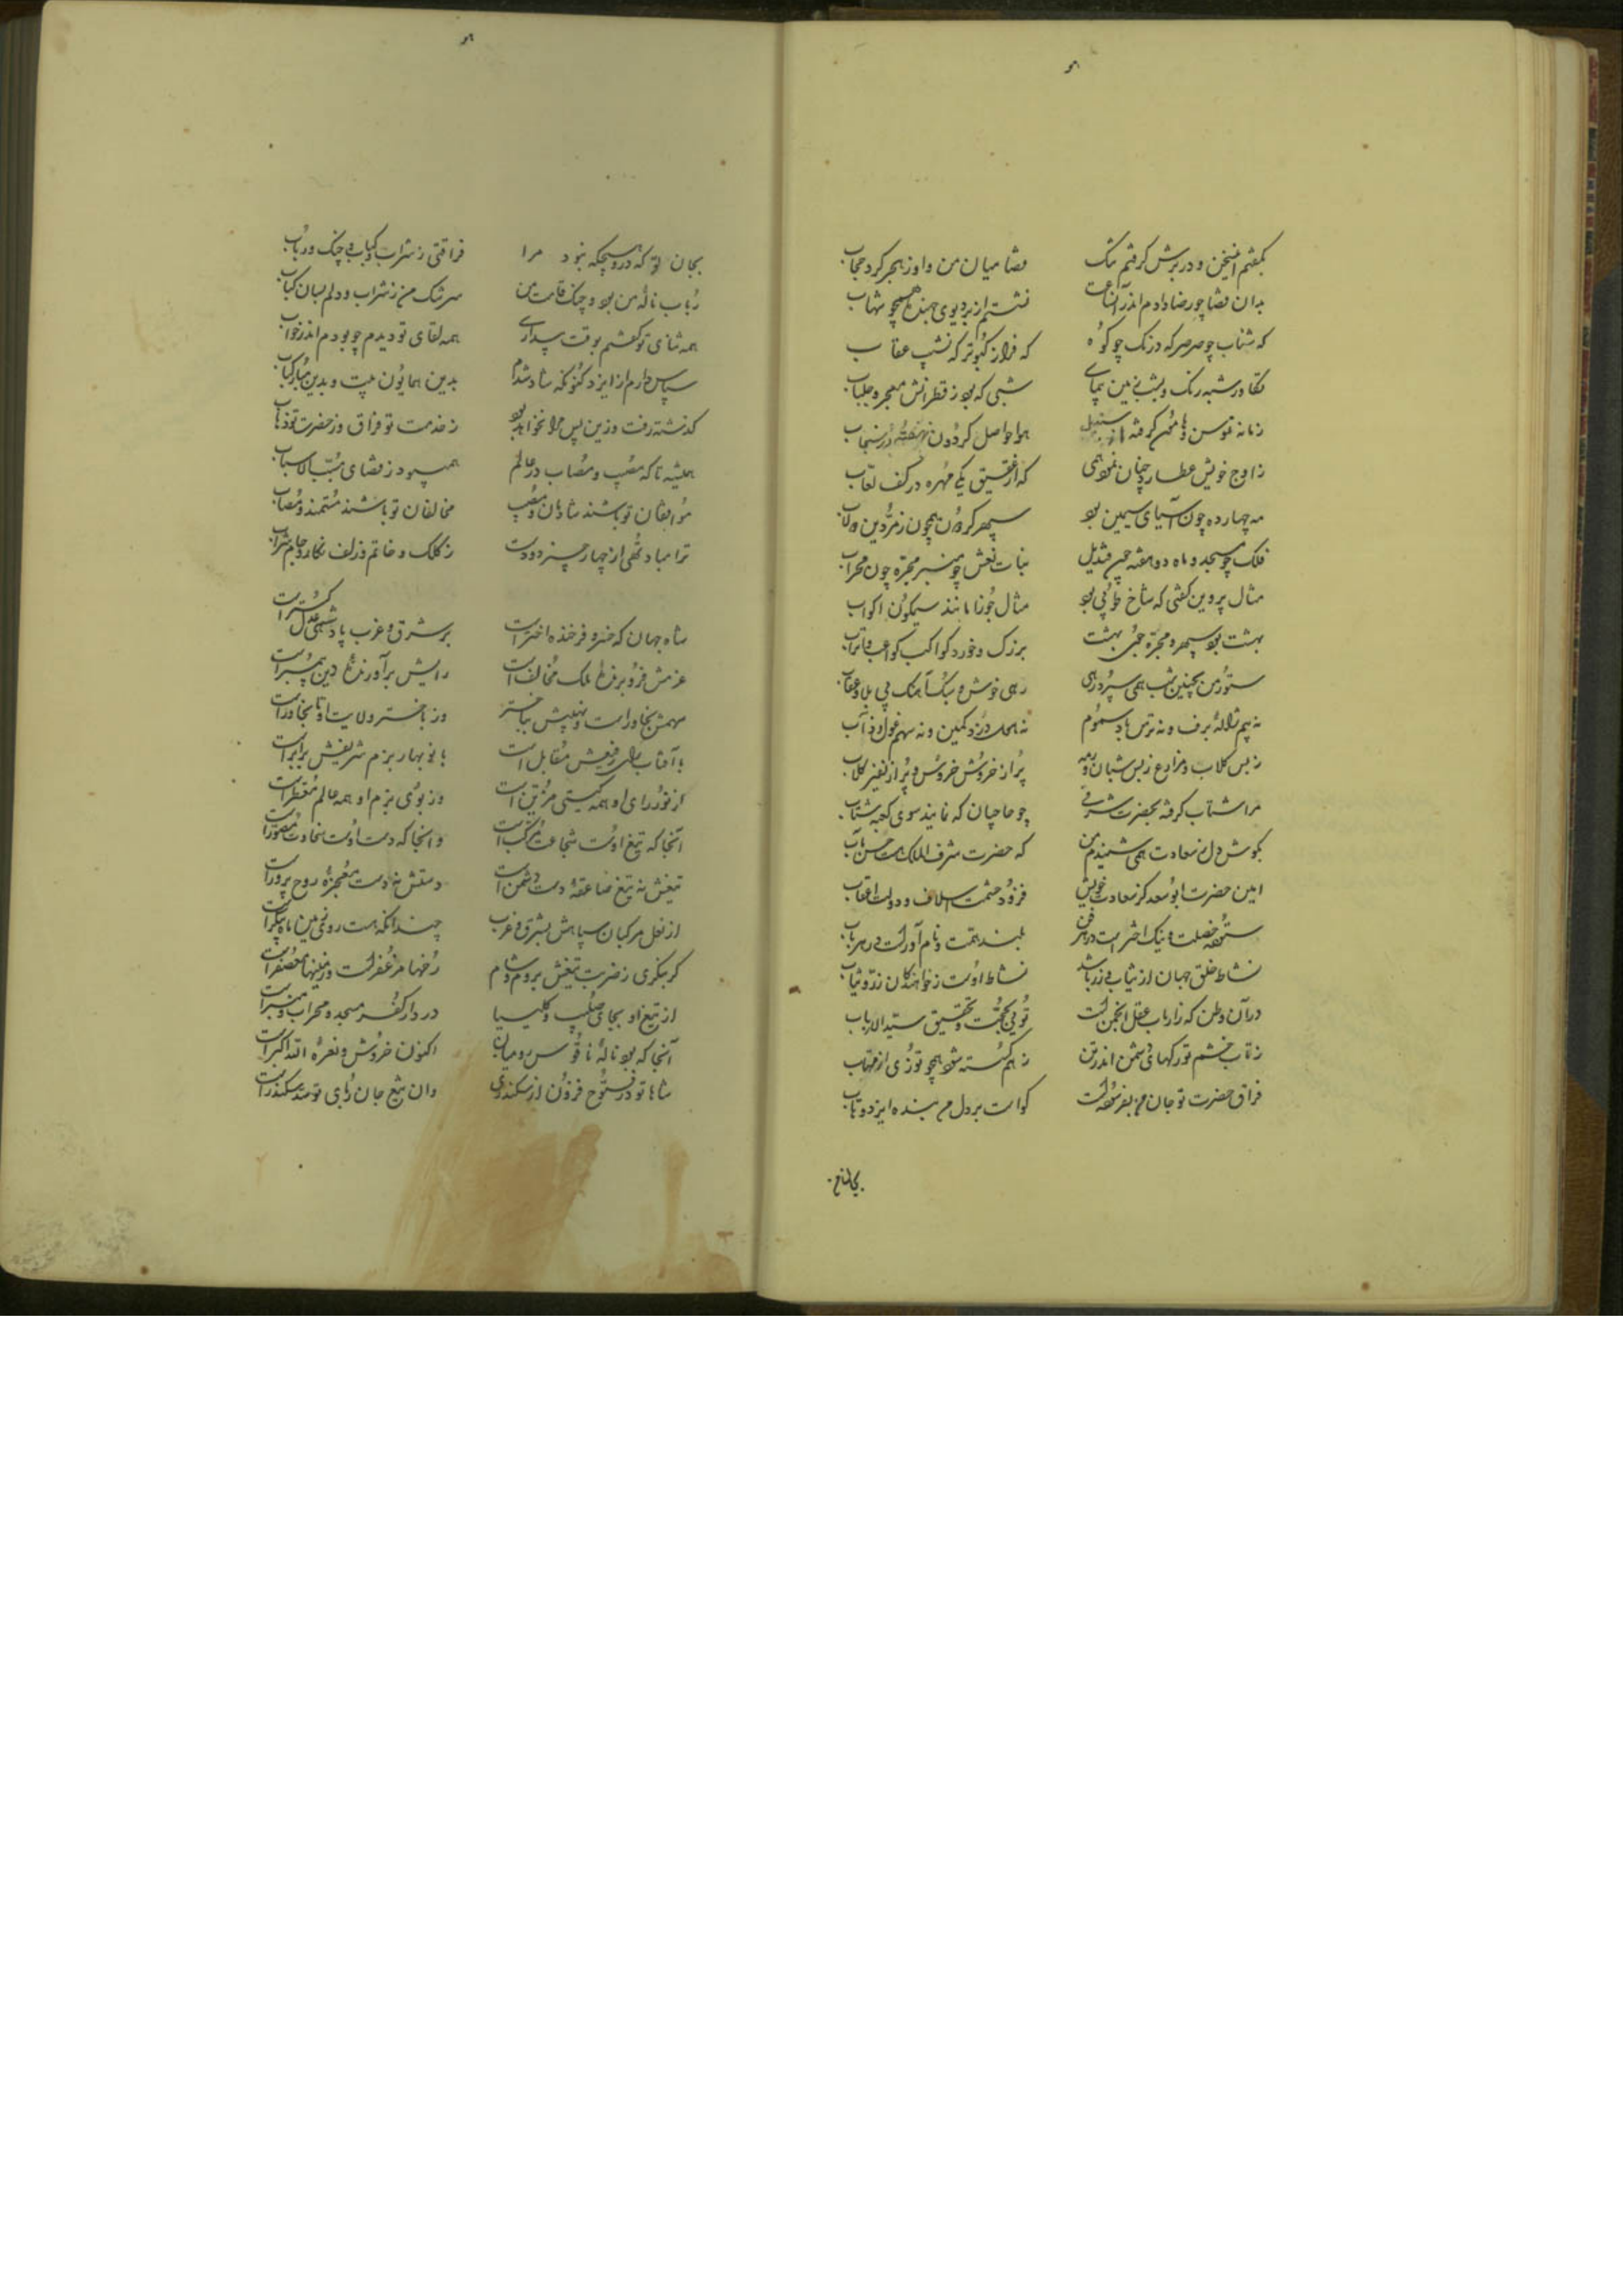 بگفتم این سخن و در برش گرفتم تنک قضا میان من و او ز هجر کرد حجاب
بدان قضا چو رضا دادم اندر آن ساعت نشستم از بر دیوی جهنده همچو شهاب
که شتاب چو صرصر که درنک چو کوه که فراز کبوتر که نشیب عقاب
تکاور شبه رنک و زمین پیمای شبی که بود ز قطرانش معجر و جلباب
زمانه توسن و هامون گرفته از هوا حواصل گردون نهفته در سنجاب
ز اوج خویش عطارد چنان نمود همی که از عقیق یکی مهره در کف لعاب
مه چهارده چون آسیای سیمین بود سپهر گردون همچون زمردین دولاب
فلک چو مسجد و ماه دو هفته چون قندیل بنات نعش چو منبر مجره چون محراب
مثال پروین گفتی که شاخ طوبی بود مثال جوزا مانند سیمگون اکواب
بهشت بود سپهر و مجره جوی بهشت بزرک و خورد کواکب کواعب و اتراب
ستور من بچنین شب همی سپرد رهی رهی خوش و سبک آهنک بی بلا و عقاب
نه بیم ژاله و برف و نه ترس باد سموم نه جای دزد کمین و نه سهم غول و ذآب
ز بس کلاب و مزارع ز بس شبان و رمه پر از خروش خروس و پر از نفیر کلاب
مرا شتاب گرفته بحضرت شرفی چو حاجیان که نمایند سوی کعبه شتاب
بگوش دل ز سعادت همی شنیدم من که حضرت شرف الملک هست حسن مآب
امین حضرت ابوسعد کز سعادت خویش فزود حشمت اسلاف و دولت اعقاب
ستوده خصلت و نیک اختر است در هر فن بلند همت و نام آور است در هر باب
نشاط خلق جهان از ثیاب و زر باشد نشاط اوست ز خواهندگان زر و ثیاب
در آن وطن که ز ارباب عقل انجمن است توئی بحجت و تحقیق سید الارباب
ز تاب خشم تو رگهای دشمن اندر تن ز هم گسسته شود همچو توزی از مهتاب
فراق حضرت تو جان من بفرسوده است گواست بر دل من بنده ایزد وهاب
بجان تو که در هیچگه نبود مرا فراقتی ز شراب و کباب و چنک و رباب
رباب ناله من بود و چنک قامت من سرشک من ز شراب و دلم بسان کباب
همه ثنای تو گفتم بوقت بیداری همه لقای تو دیدم چو بودم اندر خواب
سپاس دارم از ایزد کنونکه شاد شدم بدین همایون بیت و بدین مبارک باب
گذشته رفت و زین پس مرا نخواهد بود ز خدمت تو فراق و ز حضرت تو ذهاب
همیشه تا که مصیب و مصاب در عالم همی بود ز قضای مسبب الاسباب
موافقان تو باشند شادمان و مصیب مخالفان تو باشند مستمند و مصاب
ترا مباد تهی از چهار چیز دو دست ز کلک و خاتم و زلف نکار و جام شراب
شاه جهان که خسرو فرخنده اختر است بر شرق و غرب پادشهی عدل گستر است
عزمش فرو برنده ملک مخالف است رایش برآورنده دین پیمبر است
سهمش بخاور است و نهیبش بباختر وز باختر ولایت او تا بخاور است
با آفتاب رای رفیعش مقابل است با نوبهار بزم شریفش برابر است
از نور رای او همه گیتی مزین است وز بوی بزم او همه عالم معطر است
آنجا که تیغ اوست شجاعت مرکب است و آنجا که دست اوست سخاوت مصور است
تیغش نه تیغ صاعقه دست دشمن است دستش نه دست معجزه روح پرور است
از نعل مرکبان سپاهش بشرق و غرب چندانکه هست روی زمین ماه پیکر است
گر بنگری ز ضربت تیغش بروم و شام رخها مزعفر است و زمینها معصفر است
از تیغ او بجای صلیب و کلیسیا در دار کفر مسجد و محراب و منبر است
آنجا که بود ناله ناقوس رومیان اکنون خروش و نعره الله اکبر است
شاها تو در فتوح فزون از سکندری وان تیغ جان ربای تو سد سکندر است